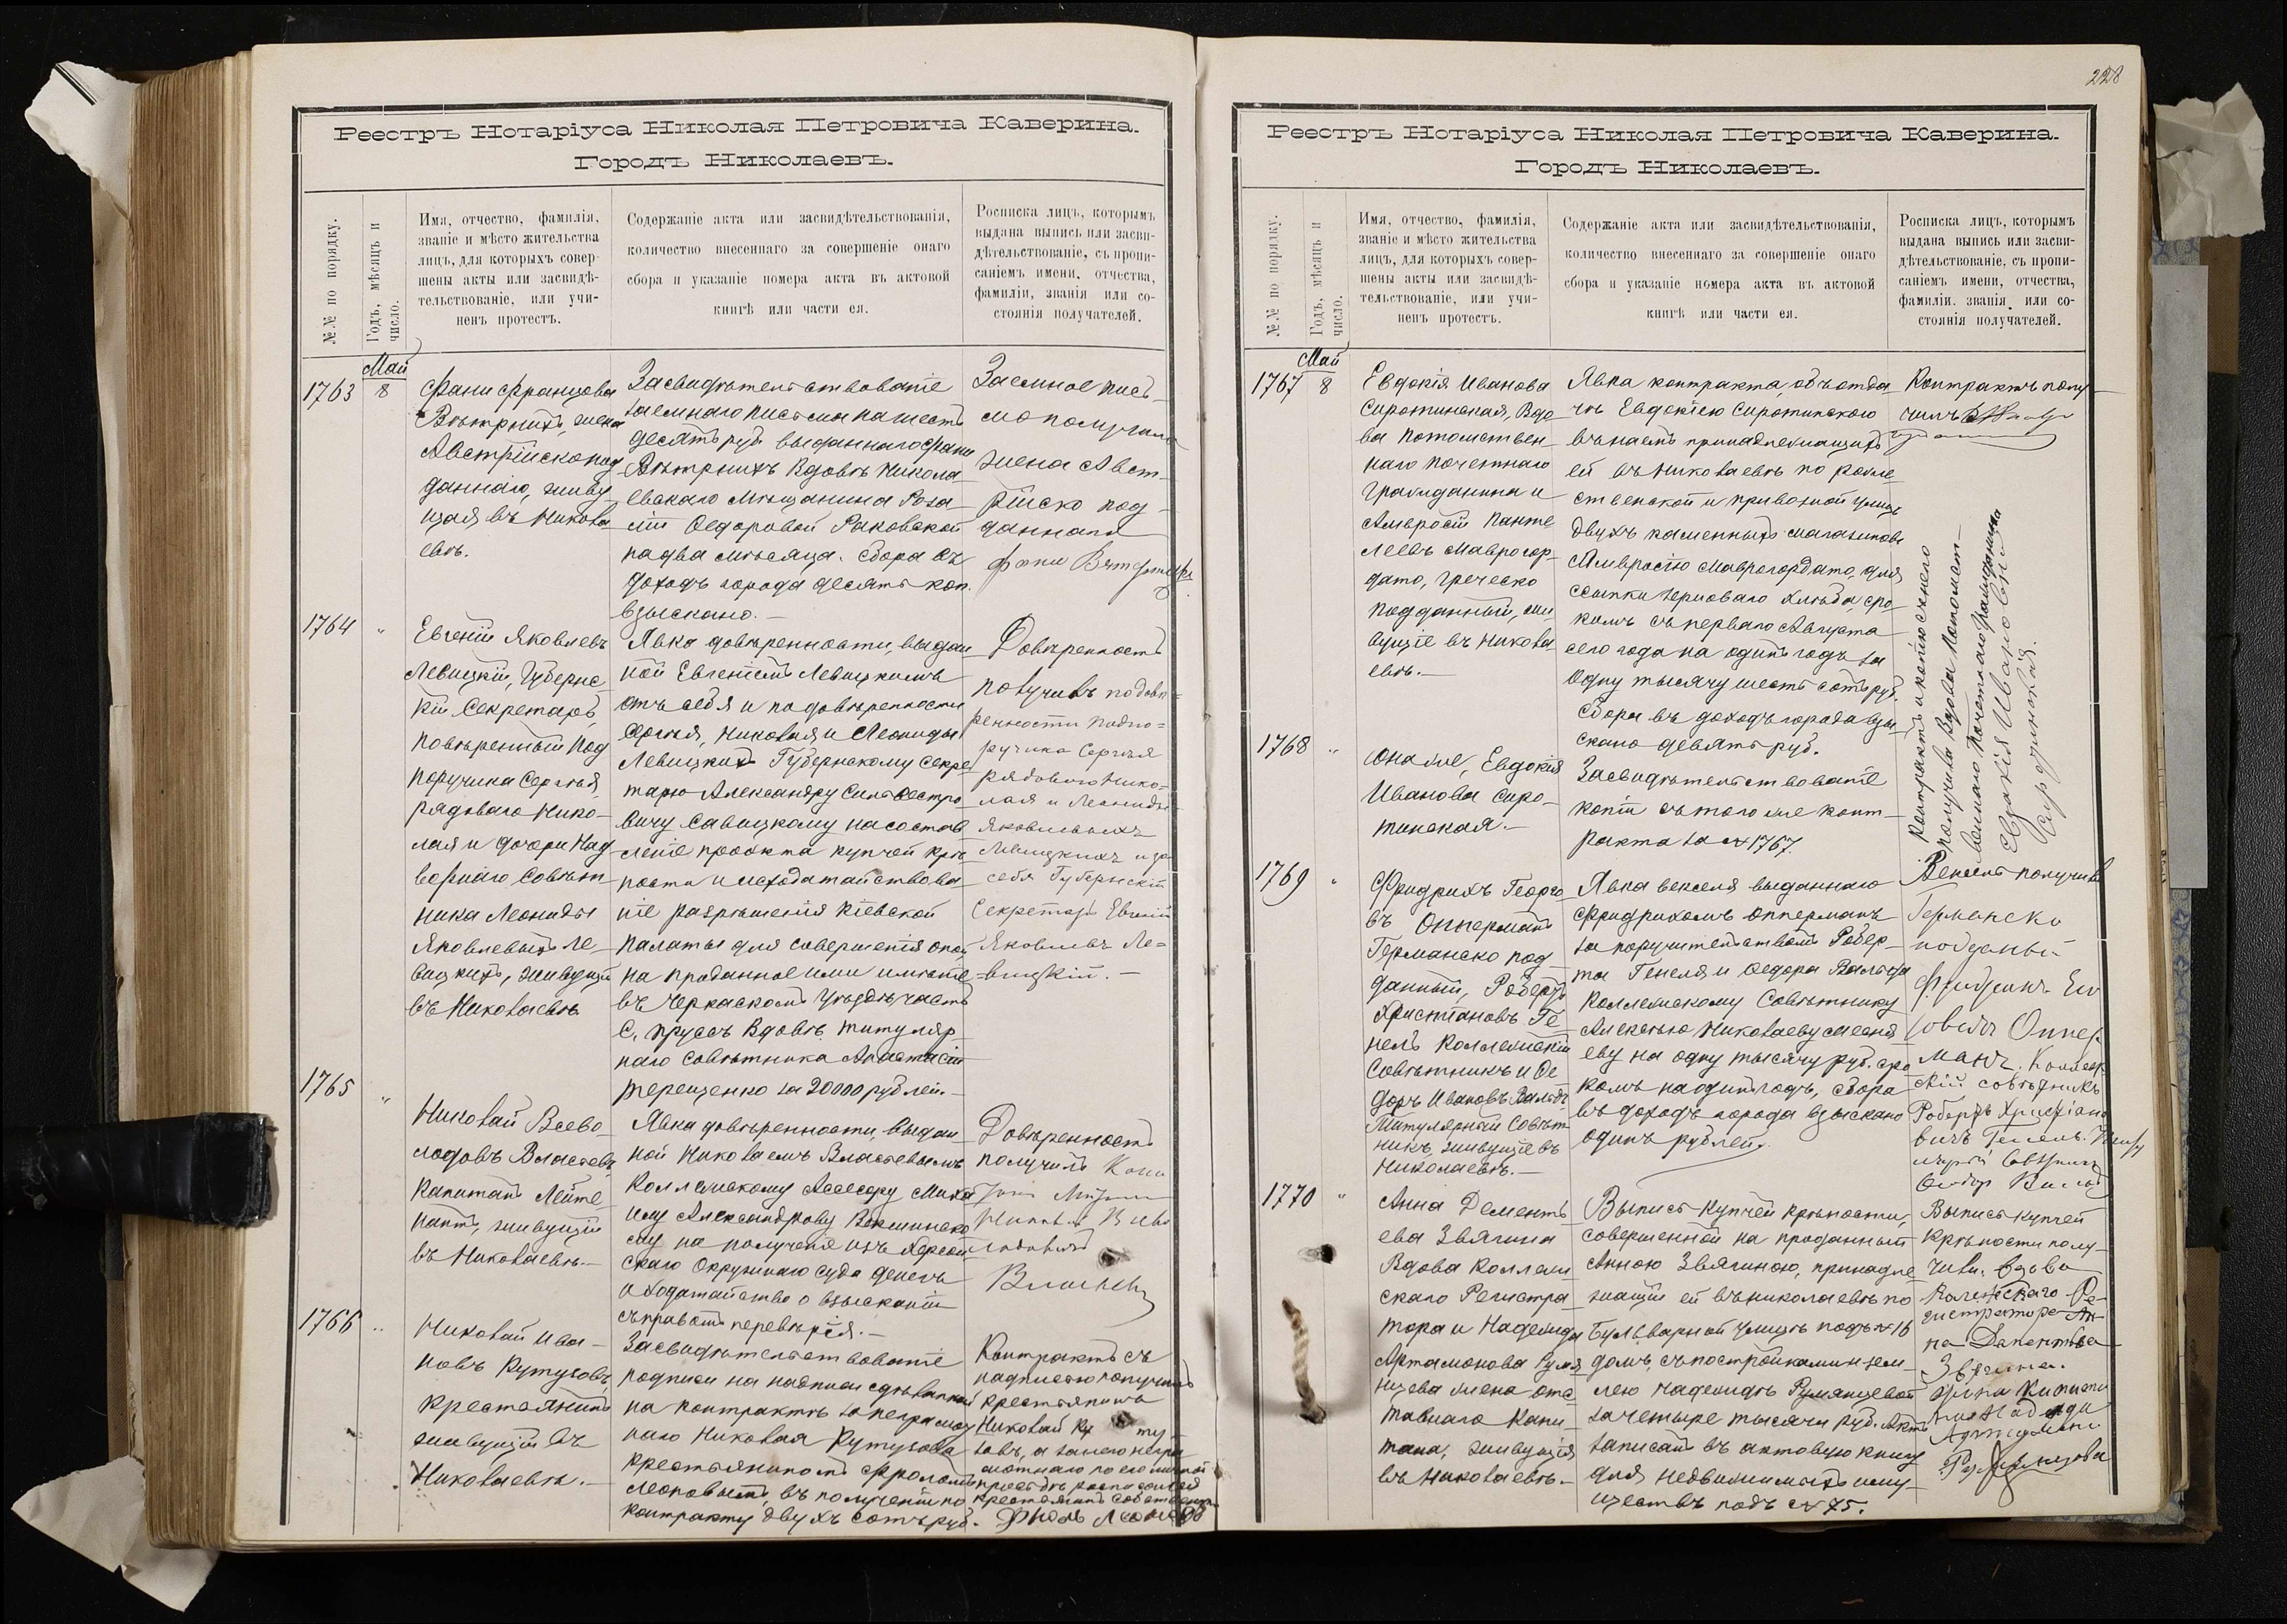 Реестръ Нотаріуса Николая Петровича Каверина.
Городъ Николаевъ.
№№ по порядку.
Годъ, мѣсяцъ и
число.
Имя, отчество, фамилія,
званіе и мѣсто жительства
лицъ, для которыхъ совер-
шены акты или засвидѣ-
тельствованіе, или учи-
ненъ протестъ.
Содержаніе акта или засвидѣтельствованія,
количество внесеннаго за совершеніе онаго
сбора и указаніе номера акта въ актовой
книгѣ или части ея.
Росписка лицъ, которымъ
выдана выпись или засви-
дѣтельствованіе, съ пропи-
саніемъ имени, отчества,
фамиліи, званія или со-
стоянія получателей.
Май
1763
8
Фани Францова
Вѣтрнихъ, жена
Австрійскопод
даннаго, живу
щая въ Никола
евѣ.
Засвидѣтельствованіе
заемнаго письма на шесть
десятъ руб. выданнаго Фани
Вѣтрнихъ Вдовѣ Никола
евскаго Мѣщанина Роза
ліи Ѳедоровой Раковской
на два мѣсяца. Сбора въ
доходъ города десять коп.
взыскано.
Заемное пись
мо получила
жена Авст
рійско под
даннаго
Фани
1764
"
Евгеній Яковлевъ
Левицкій, Губернс
кій Секретарь,
повѣренный Под
поручика Сергѣя,
рядоваго Нико-
лая и дочери Над
ворнаго Совѣт
ника Леониды
Яковлевыхъ Ле-
вицкихъ, живущій
въ Николаевѣ
Явка довѣренности, выдан
ной Евгеніемъ Левицкимъ
отъ себя и по довѣренности
Сергѣя, Николая и Леониды
Левицкихъ Губернскому Секре
тарю Александру Сильвестро
вичу Савицкому на состав
леніе проэкта купчей крѣ
пости и исходатайствова
ніе разрѣшенія Кіевской
Палаты для совершенія оной
на проданное ими имѣніе
въ Черкаскомъ Уѣздѣ часть
С. Прусъ Вдовѣ Титуляр
наго Совѣтника Анастасіи
Терещенко за 20000 рублей.
Довѣренность
получилъ по довѣ=
ренности Подпо=
ручика Сергѣя
рядового Нико=
лая и Леониды
Яковлевыхъ
Левицкихъ и за
себя Губернскій
Секретарь Евгеній
Яковлевъ Ле=
вицкій.
1765
"
Николай Всево
лодовъ Властевъ
Капитанъ Лейте
нантъ, живущій
въ Николаевѣ.
Явка довѣренности, выдан
ной Николаемъ Властевымъ
Коллежскому Асессору Миха
илу Александрову
на полученіе изъ Херсон
скаго Окружнаго суда денегъ
и ходатайство о взысканіи
съ правомъ перевѣрія.
Довѣренность
получилъ Капи
1766
"
Николай Ива
новъ Кутузовъ,
крестьянинъ
живущій въ
Николаевѣ.
Засвидѣтельствованіе
подписи на надписи сдѣланной
на контрактѣ за неграмот
наго Николая Кутузова
крестьяниномъ Фроломъ
Леоновымъ, въ полученіи по
контракту двухъ сотъ руб.
Контрактъ съ
надписью получилъ
крестьянинъ
Николай Куту
зовъ, а за него негра
мотнаго по его личной
просьбѣ росписался
крестьянинъ
Фролъ Леоновъ
228
Реестръ Нотаріуса Николая Петровича Каверина.
Городъ Николаевъ.
№№ по порядку.
Годъ, мѣсяцъ и
число.
Имя, отчество, фамилія,
званіе и мѣсто жительства
лицъ, для которыхъ совер-
шены акты или засвидѣ-
тельствованіе, или учи-
ненъ протестъ.
Содержаніе акта или засвидѣтельствованія,
количество внесеннаго за совершеніе онаго
сбора и указаніе номера акта въ актовой
книгѣ или части ея.
Росписка лицъ, которымъ
выдана выпись или засви-
дѣтельствованіе, съ пропи-
саніемъ имени, отчества,
фамиліи. званія или со-
стоянія получателей.
Май
1767
8
Евдокія Иванова
Сиротинская, Вдо
ва Потомствен
наго Почетнаго
Гражданина и
Амвросій Панте
леевъ Маврогор
дато, Греческо
подданный, жи
вущіе въ Никола
евѣ.
Явка контракта, объ отда
чѣ Евдокіею Сиротинскою
въ наемъ принадлежащихъ
ей въ Николаевѣ по Рожде
ственской и Привозной улицѣ
двухъ каменныхъ магазиновъ
Амвросію Маврогордато, для
ссыпки зерноваго хлѣба сро
комъ съ перваго Августа
сего года на одинъ годъ за
одну тысячу шесть сотъ руб.
Сбора въ доходъ города взы
скано девять руб.
Контрактъ полу
чилъ
Контрактъ и копію с него
получила Вдова Потомст-
веннаго Почетнаго Гражданина
Евдокія Ивановна
Сиротинская.
1768
"
Она же, Евдокія
Иванова Сиро-
тинская.
Засвидѣтельствованіе
копіи съ того же конт
ракта за № 1767.
1769
"
Фридрихъ Георго
въ Опперманъ
Германско под
данный, Робертъ
Христіановъ Ге
нель Коллежскій
Совѣтникъ и Ѳе
доръ Ивановъ Вальдъ
Титулярный Совѣт
никъ, живущіе въ
Николаевѣ.
Явка векселя выданнаго
Фридрихомъ Опперманъ
за поручительствомъ Робер
та Генеля и Ѳедора Вальда
Коллежскому Совѣтнику
Алексѣю Николаеву
еву на одну тысячу руб. сро
комъ на одинъ годъ, сбора
въ доходъ города взыскано
одинъ рублей.
Вексель получилъ
Германско
подданый
Оппер
манъ. Коллеж
скій совѣтникъ
Робертъ Христіано
вичъ Генель.
1770
"
Анна Дементье
ева Звягина
Вдова Коллеж
скаго Регистра
тора и Надежда
Артамонова Румя
нцева жена отс
тавнаго Капи
тана, живущія
въ Николаевѣ.
Выпись купчей крѣпости,
совершенной на проданный
Анною Звягиною, принадле
жащій ей въ Николаевѣ по
Бульварной улицѣ подъ № 16
домъ, съ постройками и зем-
лею Надеждѣ Румянцевой
за четыре тысячи руб. Актъ
записанъ въ актовую книгу
для недвижимыхъ иму-
ществъ подъ № 75.
Выпись купчей
крѣпости полу-
чили: вдова
Колежскаго Ре-
гистратора Ан-
на Дементьева
Звягина.
жена Капита
на Надежда
Румянцова